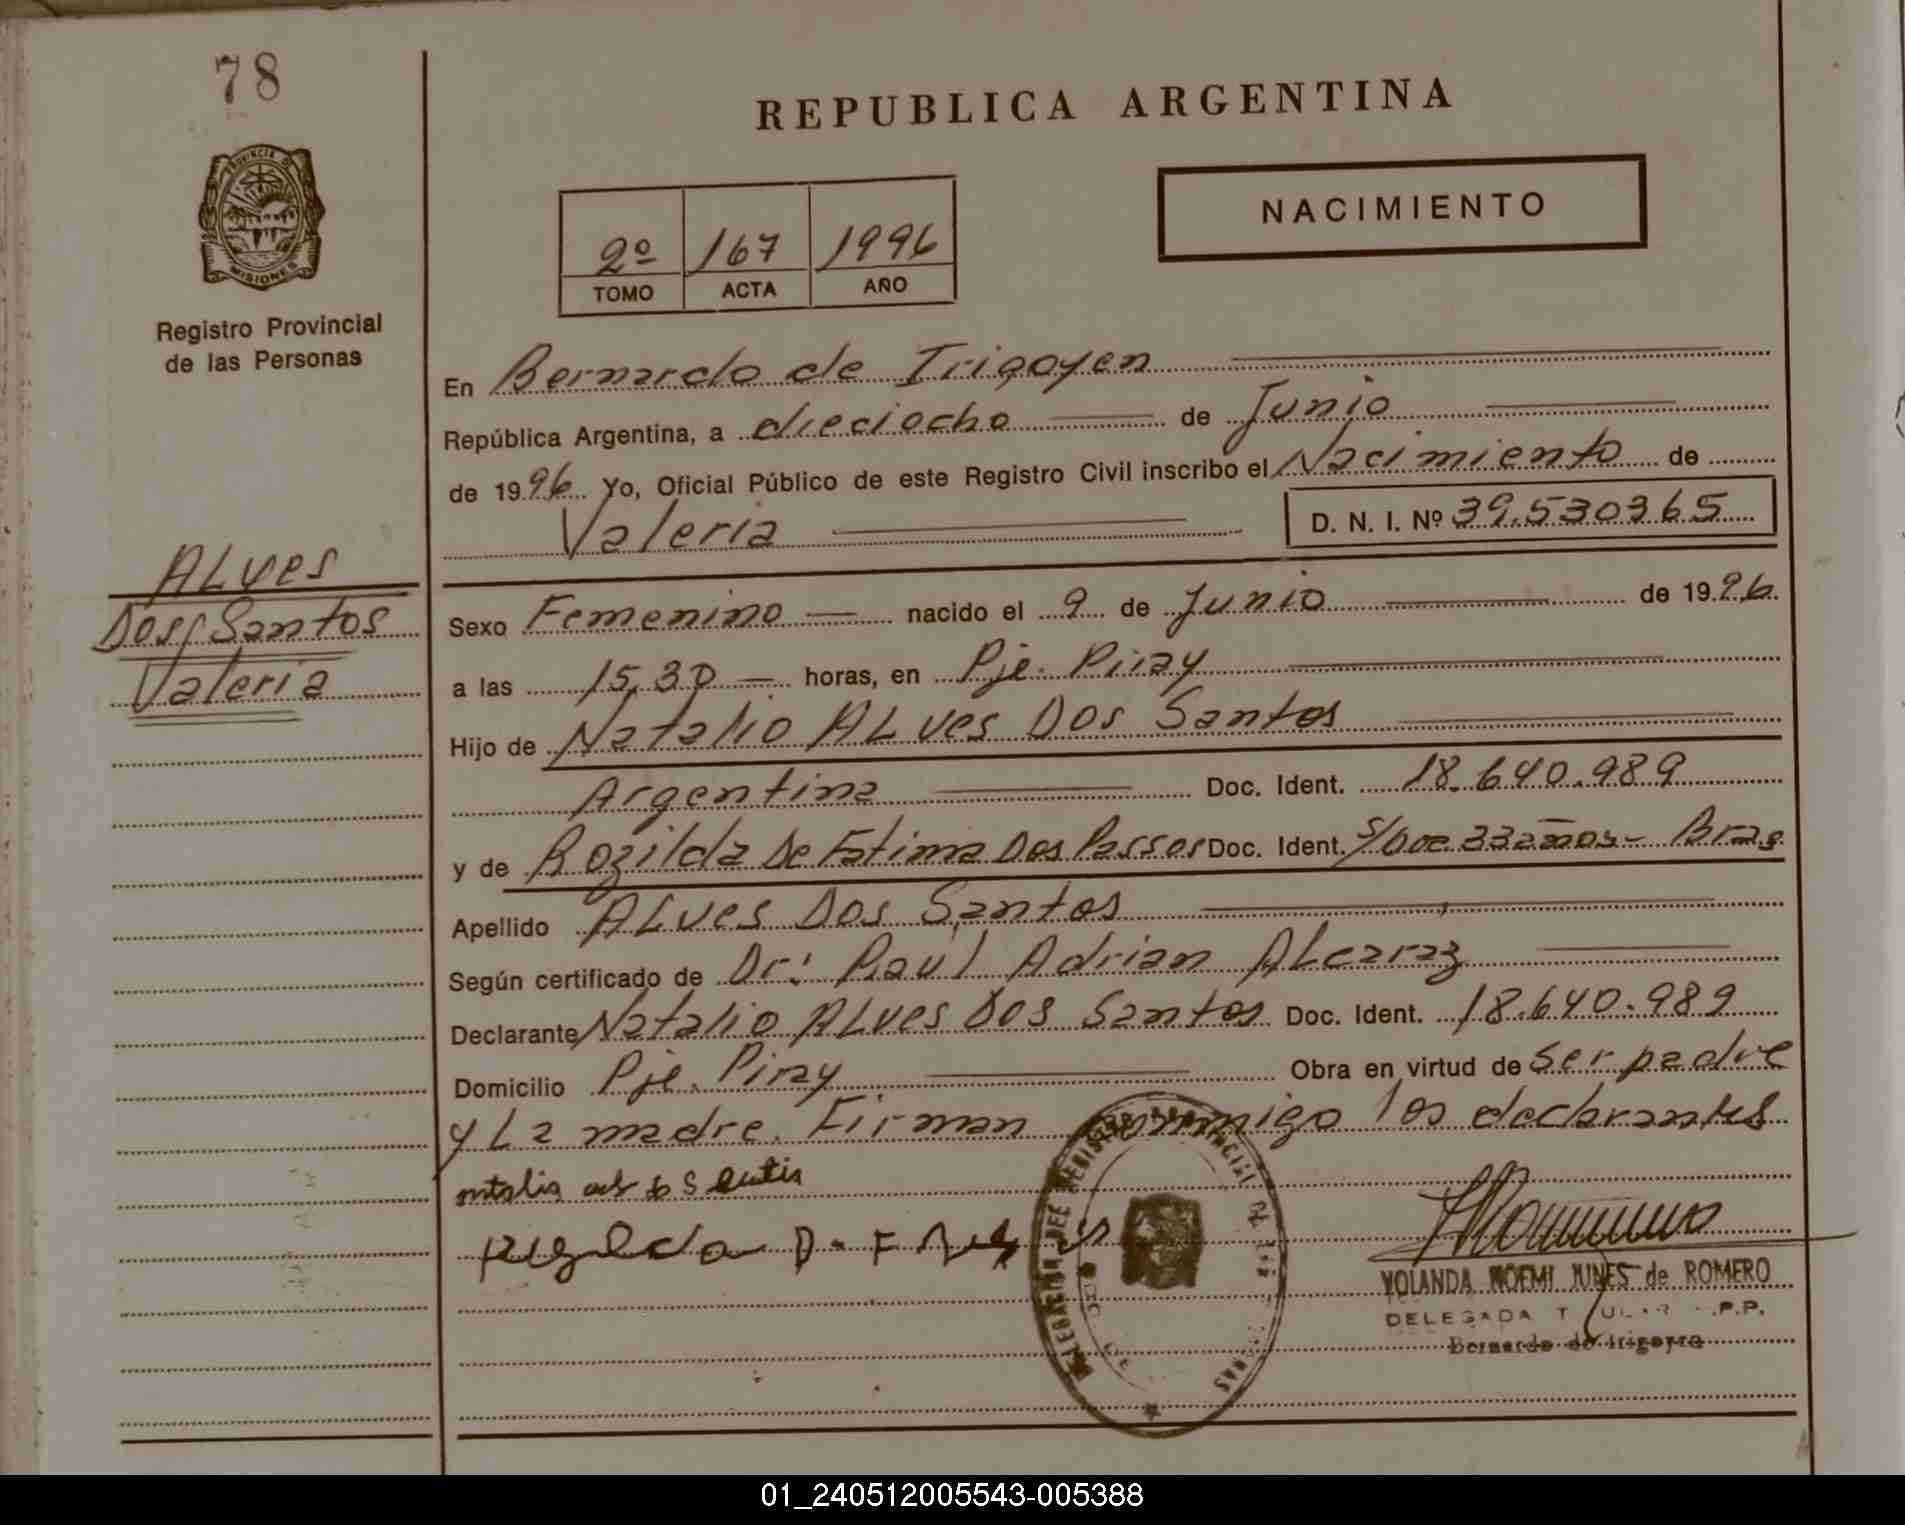 78
REPUBLICA ARGENTINA
PROVINCIA DE
MISIONES
Registro Provincial
de las Personas
NACIMIENTO
2º 167 1996
TOMO ACTA AÑO
En Bernardo de Irigoyen
República Argentina, a dieciocho de Junio
de 1996 Yo, Oficial Público de este Registro Civil inscribo el Nacimiento de
Valeria D. N. I. Nº 39.530365
ALves
Dos Santos
Valeria
Sexo Femenino nacido el 9 de Junio de 1996.
a las 15,30 horas, en Pje. Piray
Hijo de Natalio ALves Dos Santos
Argentina Doc. Ident. 18.640.989
y de Rozilda De Fatima Dos Passos Doc. Ident. S/Doc 33 años- Bras
Apellido ALves Dos Santos
Según certificado de Dr: Raúl Adrian ALcaraz
Declarante Natalio ALves Dos Santos Doc. Ident. 18.640.989
Domicilio Pje. Piray Obra en virtud de ser padre
y La madre. Firman conmigo los declarantes
YOLANDA NOEMI JUNES de ROMERO
DELEGADA
Bernardo de Irigoyen
01_240512005543-005388